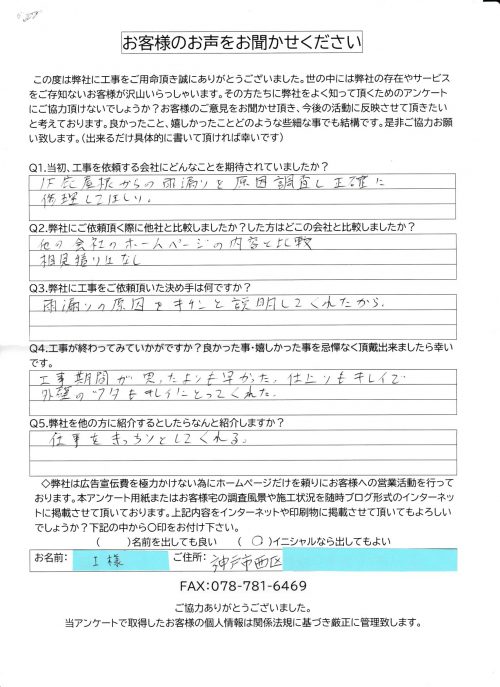 お客様のお声をお聞かせください
この度は弊社に工事をご用命頂き誠にありがとうございました。世の中には弊社の存在やサービス
をご存知ないお客様が沢山いらっしゃいます。その方たちに弊社をよく知って頂くためのアンケート
にご協力頂けないでしょうか？お客様のご意見をお聞かせ頂き、今後の活動に反映させて頂きたい
と考えております。良かったこと、嬉しかったことどのような些細な事でも結構です。是非ご協力お願
い致します。（出来るだけ具体的に書いて頂ければ幸いです）
Q1.当初、工事を依頼する会社にどんなことを期待されていましたか？
1F瓦屋根からの雨漏りを原因調査し正確に
修理してほしい。
Q2.弊社にご依頼頂く際に他社と比較しましたか？した方はどこの会社と比較しましたか？
他の会社のホームページの内容と比較
相見積りはなし
Q3.弊社に工事をご依頼頂いた決め手は何ですか？
雨漏りの原因をキチンと説明してくれたから。
Q4.工事が終わってみていかがですか？良かった事・嬉しかった事を忌憚なく頂戴出来ましたら幸い
です。
工事期間が思ったよりも早かった。仕上りもキレイで
外壁のツタもキレイにとってくれた。
Q5.弊社を他の方に紹介するとしたらなんと紹介しますか？
仕事をきっちりとしてくれる。
◇弊社は広告宣伝費を極力かけない為にホームページだけを頼りにお客様への営業活動を行って
おります。本アンケート用紙またはお客様宅の調査風景や施工状況を随時ブログ形式のインターネッ
トに掲載させて頂いております。上記内容をインターネットや印刷物に掲載させて頂いてもよろしい
でしょうか？下記の中から〇印をお付け下さい。
（　　）名前を出しても良い　（　〇　）イニシャルなら出してもよい
お名前：　I 様　ご住所：　神戸市西区
FAX:078-781-6469
ご協力ありがとうございました。
当アンケートで取得したお客様の個人情報は関係法規に基づき厳正に管理致します。